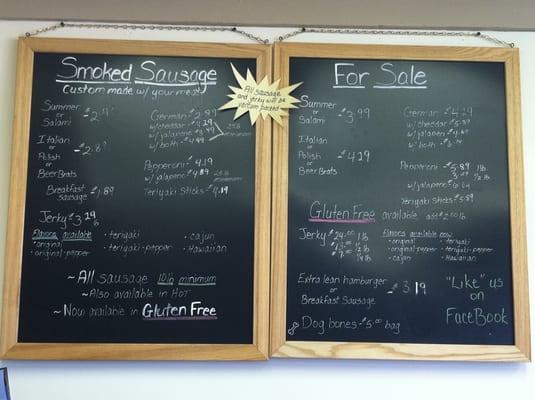 Smoked Sausage
Custom made w/ your meat
Summer
or
Salami
Italian
or
Polish
or
Beer Brats
-$2.89
Breakfast
sausage
-$1.89
Jerky-$3.29 lb
Flavors available
· original
· original-pepper
· teriyaki
· teriyaki-pepper
· cajun
· Hawaiian
German-$2.89
w/cheddar-$4.29
w/jalapeno-$3.99
w/both-$4.99
25 lb
minimum
Pepperoni-$4.19
w/jalapeno-$4.89
25 lb
minimum
Teriyaki Sticks-$4.19
~All Sausage 10 lb minimum
~Also available in Hot
~Now available in Gluten Free
All sausage
and jerky will be
vacuum packed
For Sale
Summer
or
Salami
-$3.99
Italian
or
Polish
or
Beer Brats
-$4.29
German-$4.29
w/cheddar-
w/jalapeno-
w/both-
Pepperoni-$5.89 lb
1/2 lb
w/jalapeno-
Teriyaki Sticks-$5.89
Gluten Free available add $2.00 lb
Jerky-$24.00 1 lb
1/2 lb
1/4 lb
Flavors available now
· original
· original-pepper
· cajun
· teriyaki
· teriyaki-pepper
· Hawaiian
Extra lean hamburger
or
Breakfast Sausage
-$3.19
Dog bones-$5.00 bag
"Like" us
on
FaceBook